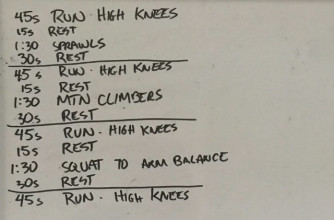 45s RUN - HIGH KNEES
15s REST
1:30 SPRAWLS
30s REST
45s RUN - HIGH KNEES
15s REST
1:30 MTN CLIMBERS
30s REST
45s RUN - HIGH KNEES
15s REST
1:30 SQUAT TO ARM BALANCE
30s REST
45s RUN - HIGH KNEES